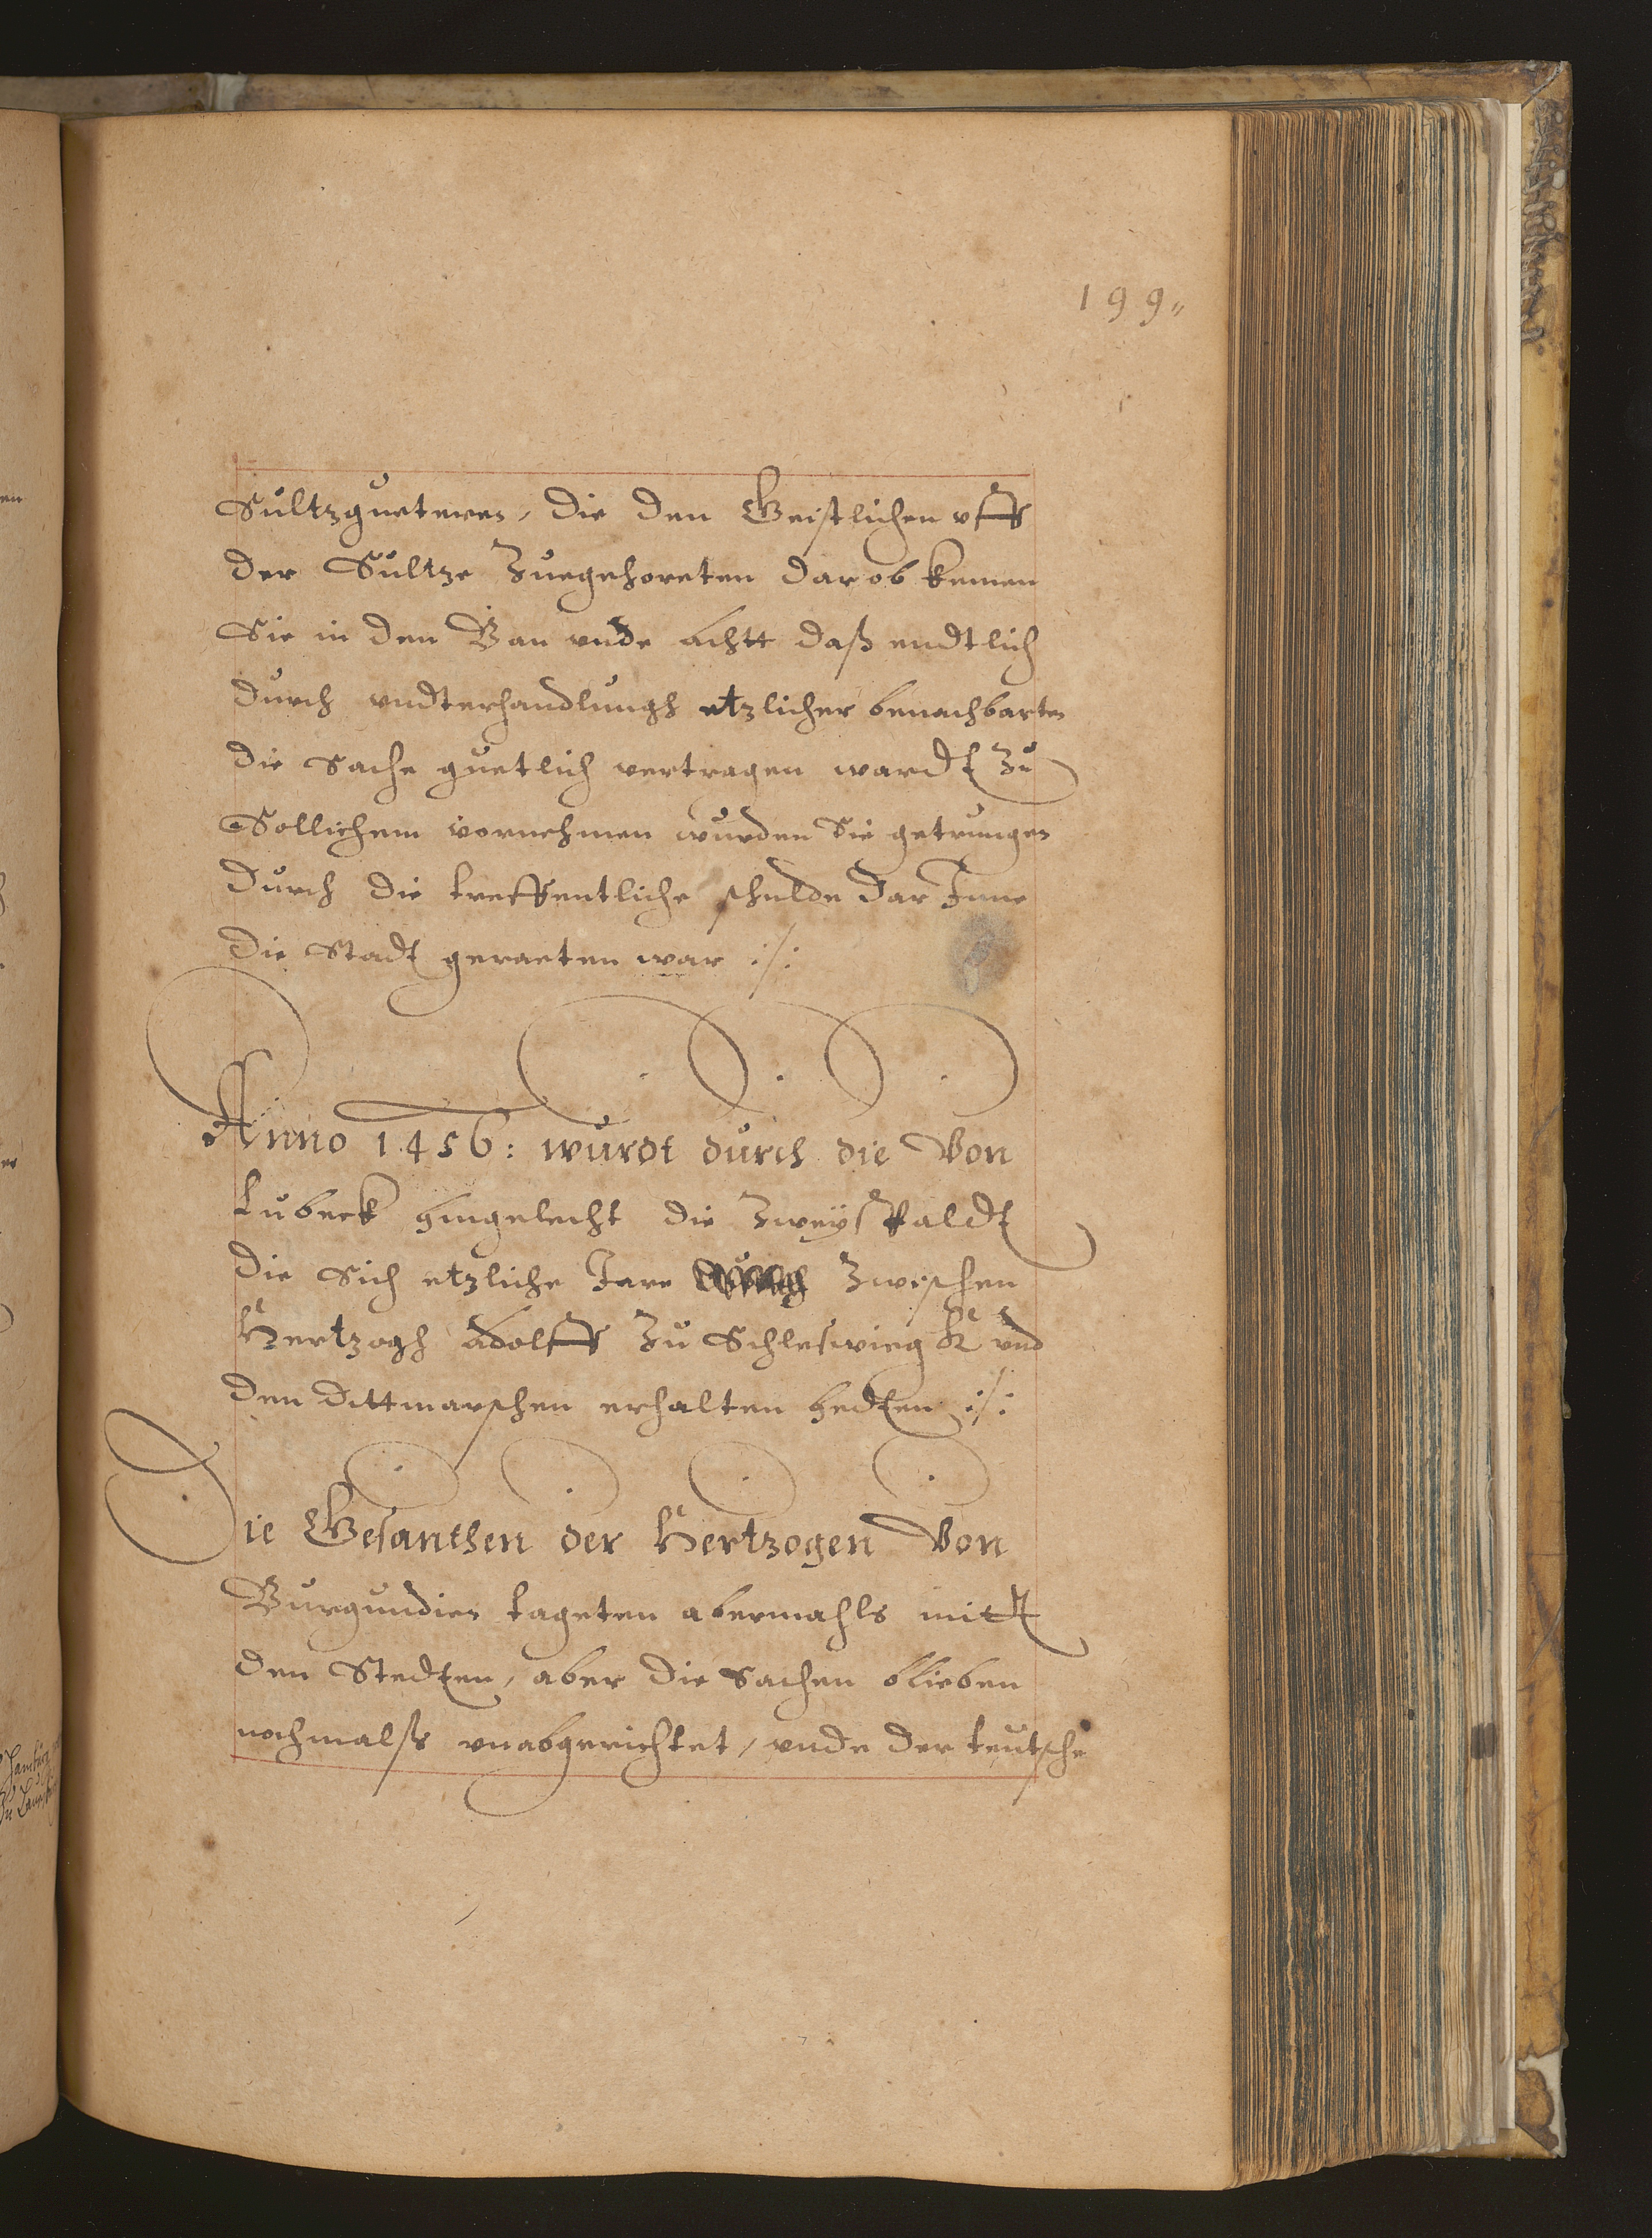 199
Sultzgueteren, die den Geistlichen vff
der Sultze Zuegehoreten dar ob kemen
Sie in den Ban vnde achtt daß endtlich
durch vndterhandlungh etzlicher benachbarten
die Sache guetlich vertragen wardt Zu
Sollichem vornehmen wurden Sie getrungen
durch die treffentliche schulde dar Inne
die Stadt geraeten war :/:
Anno 1456: wurdt durch die Von
Lubeck hingelecht die Zweyspaldt
die Sich etzliche Jare Zwischen
Hertzogh Adolff Zu Schleswieg ꝛc vnd
den Dittmarschen erhalten hedten :/:
Die Gesanthen der Hertzogen Von
Burgundien tageten abermahls mitt
den Stedten, aber die Sachen blieben
nochmalß vnabgerichtet, vnde der teutsche